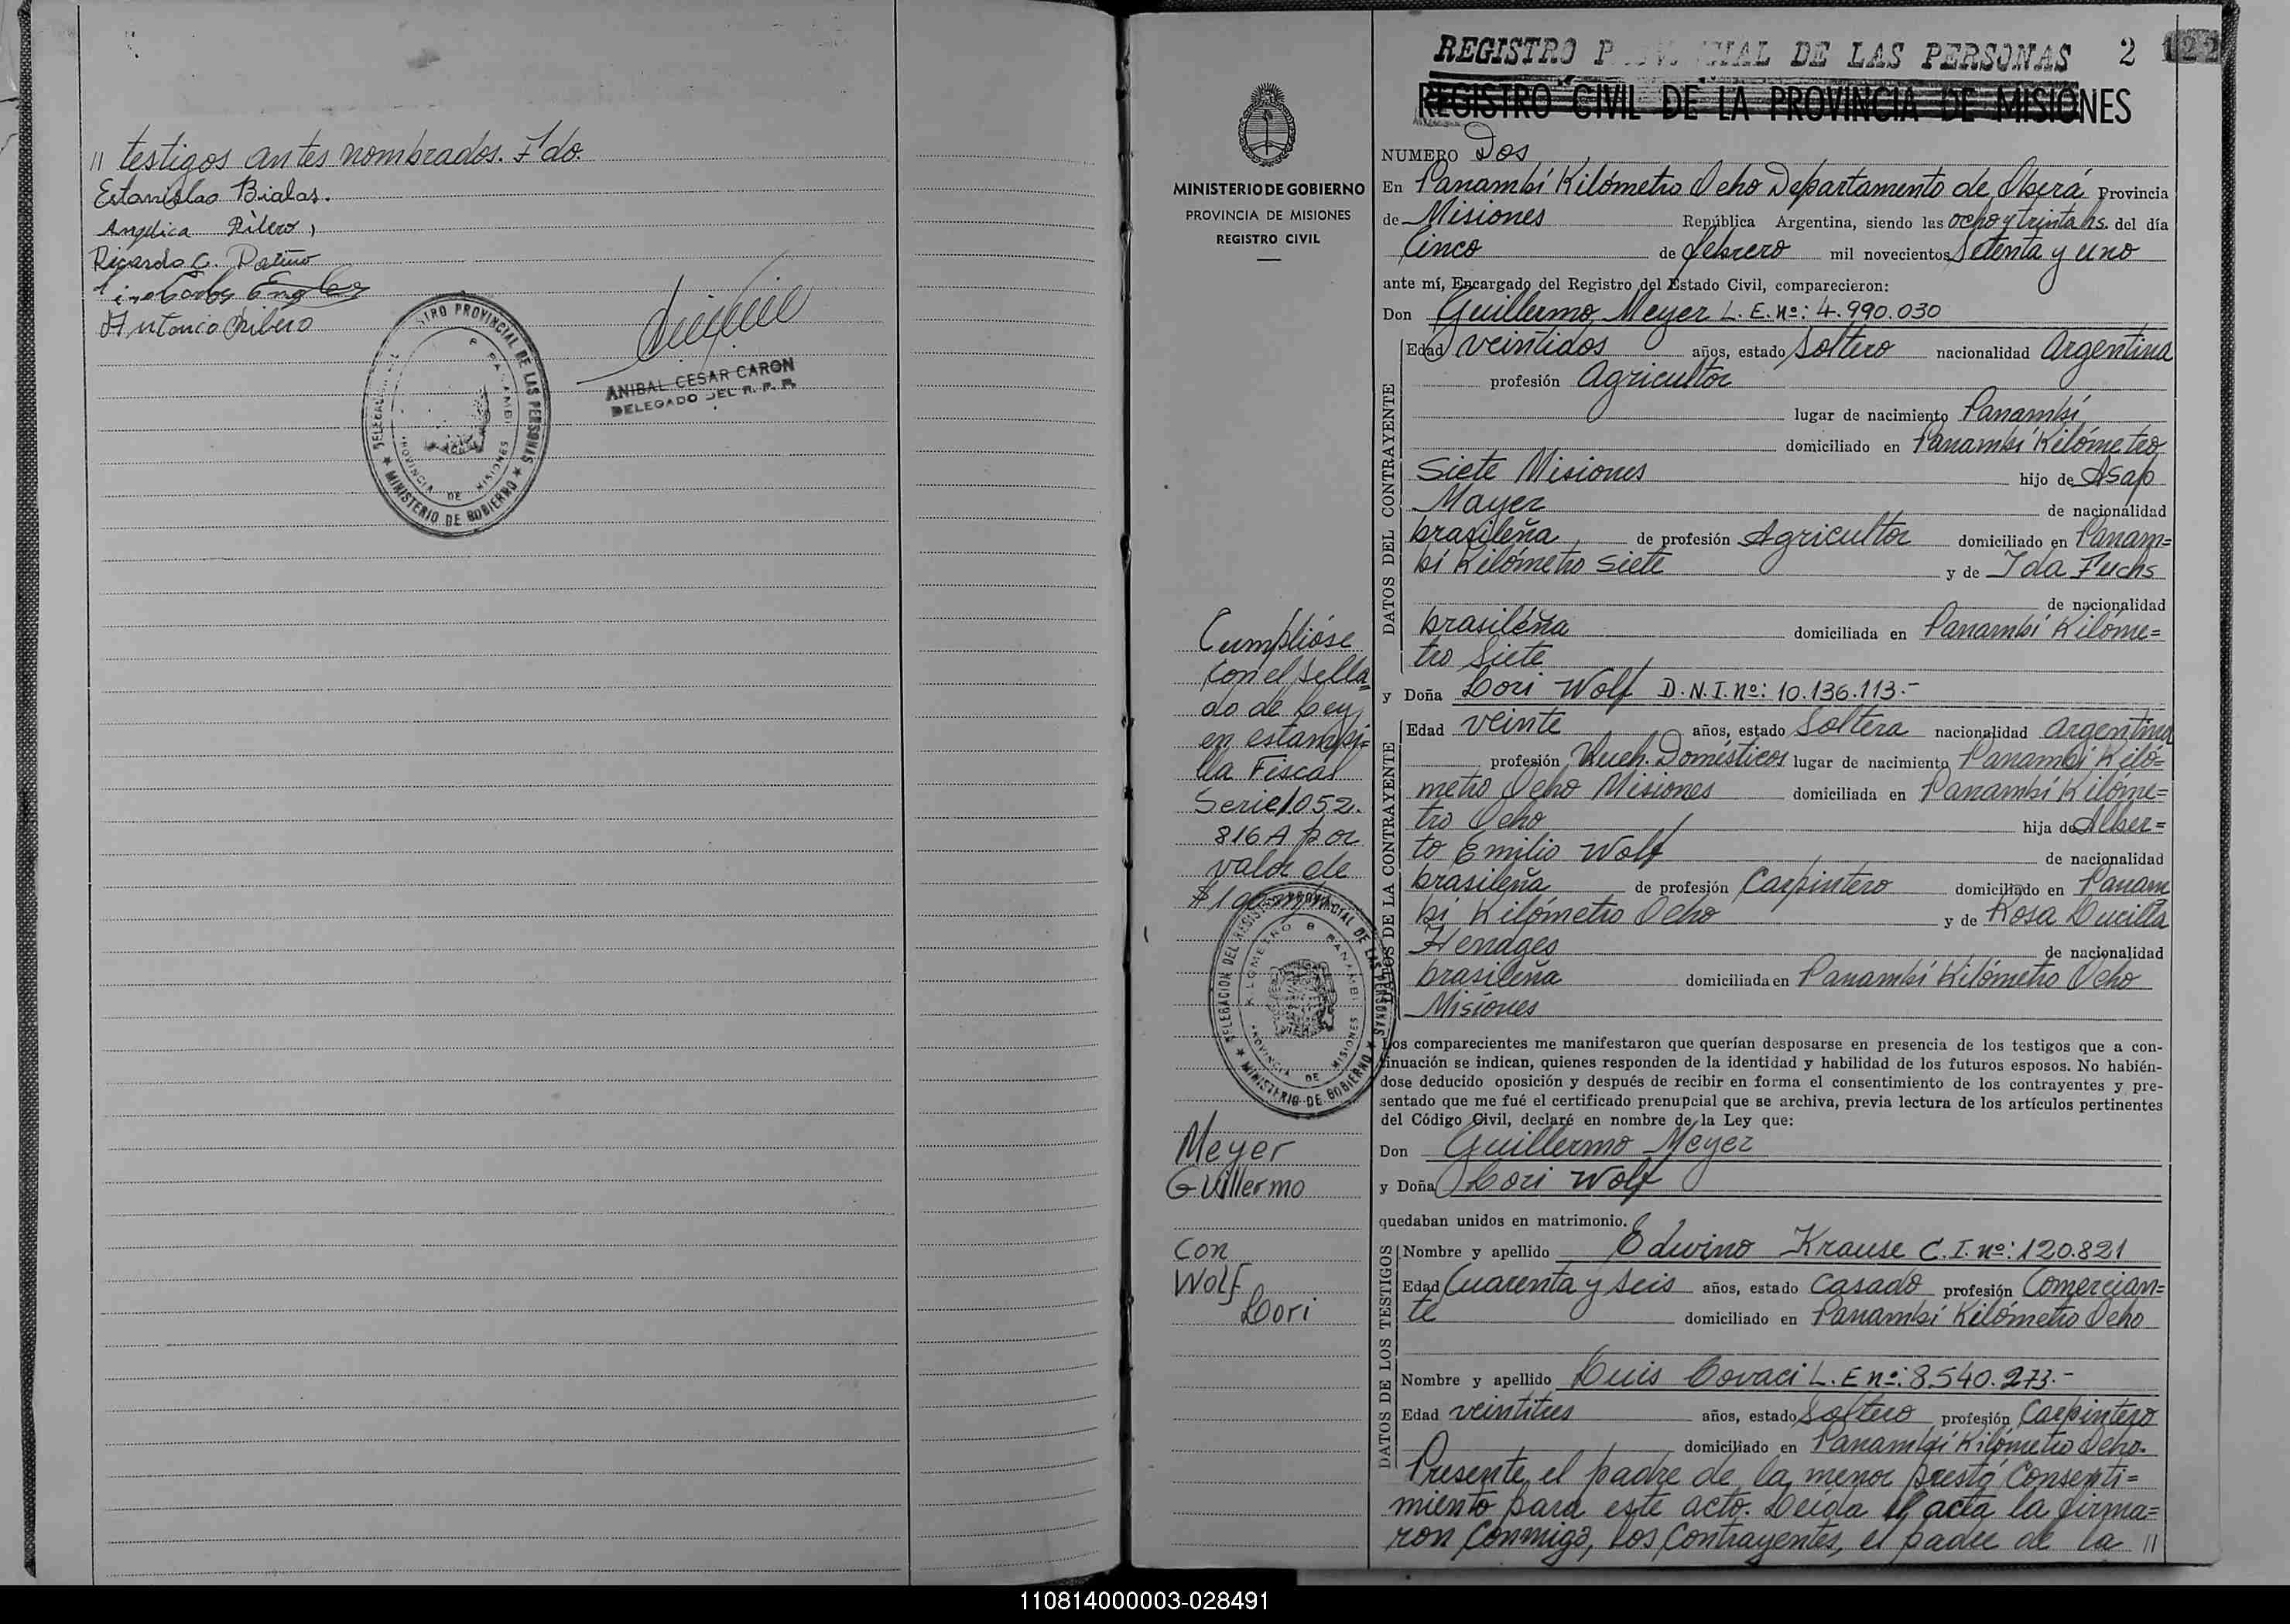 // testigos antes nombrados. Fdo.
Estanislao Bialas.
Angelica Ribero,
Ricardo G. Patiño
Antonio Ribero
ANIBAL CESAR CARON
DELEGADO DEL R. P. P.
REGISTRO PROVINCIAL DE LAS PERSONAS 2 122
REGISTRO CIVIL DE LA PROVINCIA DE MISIONES
MINISTERIO DE GOBIERNO
PROVINCIA DE MISIONES
REGISTRO CIVIL
NUMERO Dos
En Panambí Kilómetro Ocho Departamento de Oberá Provincia
de Misiones República Argentina, siendo las ocho y treinta hs. del día
Cinco de febrero mil novecientos Setenta y uno
ante mí, Encargado del Registro del Estado Civil, comparecieron:
Don Guillermo Meyer L. E. nº: 4.990.030
DATOS DEL CONTRAYENTE
Edad veintidos años, estado Soltero nacionalidad Argentina
profesión Agricultor
lugar de nacimiento Panambí
domiciliado en Panambí Kilómetro
Siete Misiones hijo de Asap
Mayer de nacionalidad
brasileña de profesión Agricultor domiciliado en Panam=
bí Kilómetro Siete y de Ida Fuchs
de nacionalidad
brasileña domiciliada en Panambí Kilóme=
tro Siete
y Doña Lori Wolf D.N.I. nº: 10.136.113.-
DATOS DE LA CONTRAYENTE
Edad veinte años, estado Soltera nacionalidad argentina
profesión Queh. Domésticos lugar de nacimiento Panambí Kiló=
metro Ocho Misiones domiciliada en Panambí Kilóme=
tro Ocho hija de Alber=
to Emilio Wolf de nacionalidad
brasileña de profesión Carpintero domiciliado en Panam
bí Kilómetro Ocho y de Rosa Ducilla
Hendges de nacionalidad
brasileña domiciliada en Panambí Kilómetro Ocho
Misiones
Los comparecientes me manifestaron que querían desposarse en presencia de los testigos que a con-
tinuación se indican, quienes responden de la identidad y habilidad de los futuros esposos. No habién-
dose deducido oposición y después de recibir en forma el consentimiento de los contrayentes y pre-
sentado que me fué el certificado prenupcial que se archiva, previa lectura de los artículos pertinentes
del Código Civil, declaré en nombre de la Ley que:
Don Guillermo Meyer
y Doña Lori Wolf
quedaban unidos en matrimonio.
DATOS DE LOS TESTIGOS
Nombre y apellido Edwino Krause C.I. nº: 120.821
Edad Cuarenta y seis años, estado casado profesión Comercian=
te domiciliado en Panambí Kilómetro Ocho
Nombre y apellido Luis Covaci L. E nº: 8.540.273.-
Edad veintitres años, estado Soltero profesión Carpintero
domiciliado en Panambí Kilómetro Ocho.
Presente el padre de la menor prestó Consenti=
miento para este acto. Leída el acta la firma=
ron conmigo, los contrayentes, el padre de la //
Cumplióse
con el sella=
do de Ley
en estampi=
lla Fiscal
Serie 1052.
816 A por
valor de
Meyer
Guillermo
con
Wolf
Lori
DELEGACION DEL REGISTRO PROVINCIAL DE LAS PERSONAS
KILOMETRO 8 PANAMBI
PROVINCIA DE MISIONES
MINISTERIO DE GOBIERNO
110814000003-028491